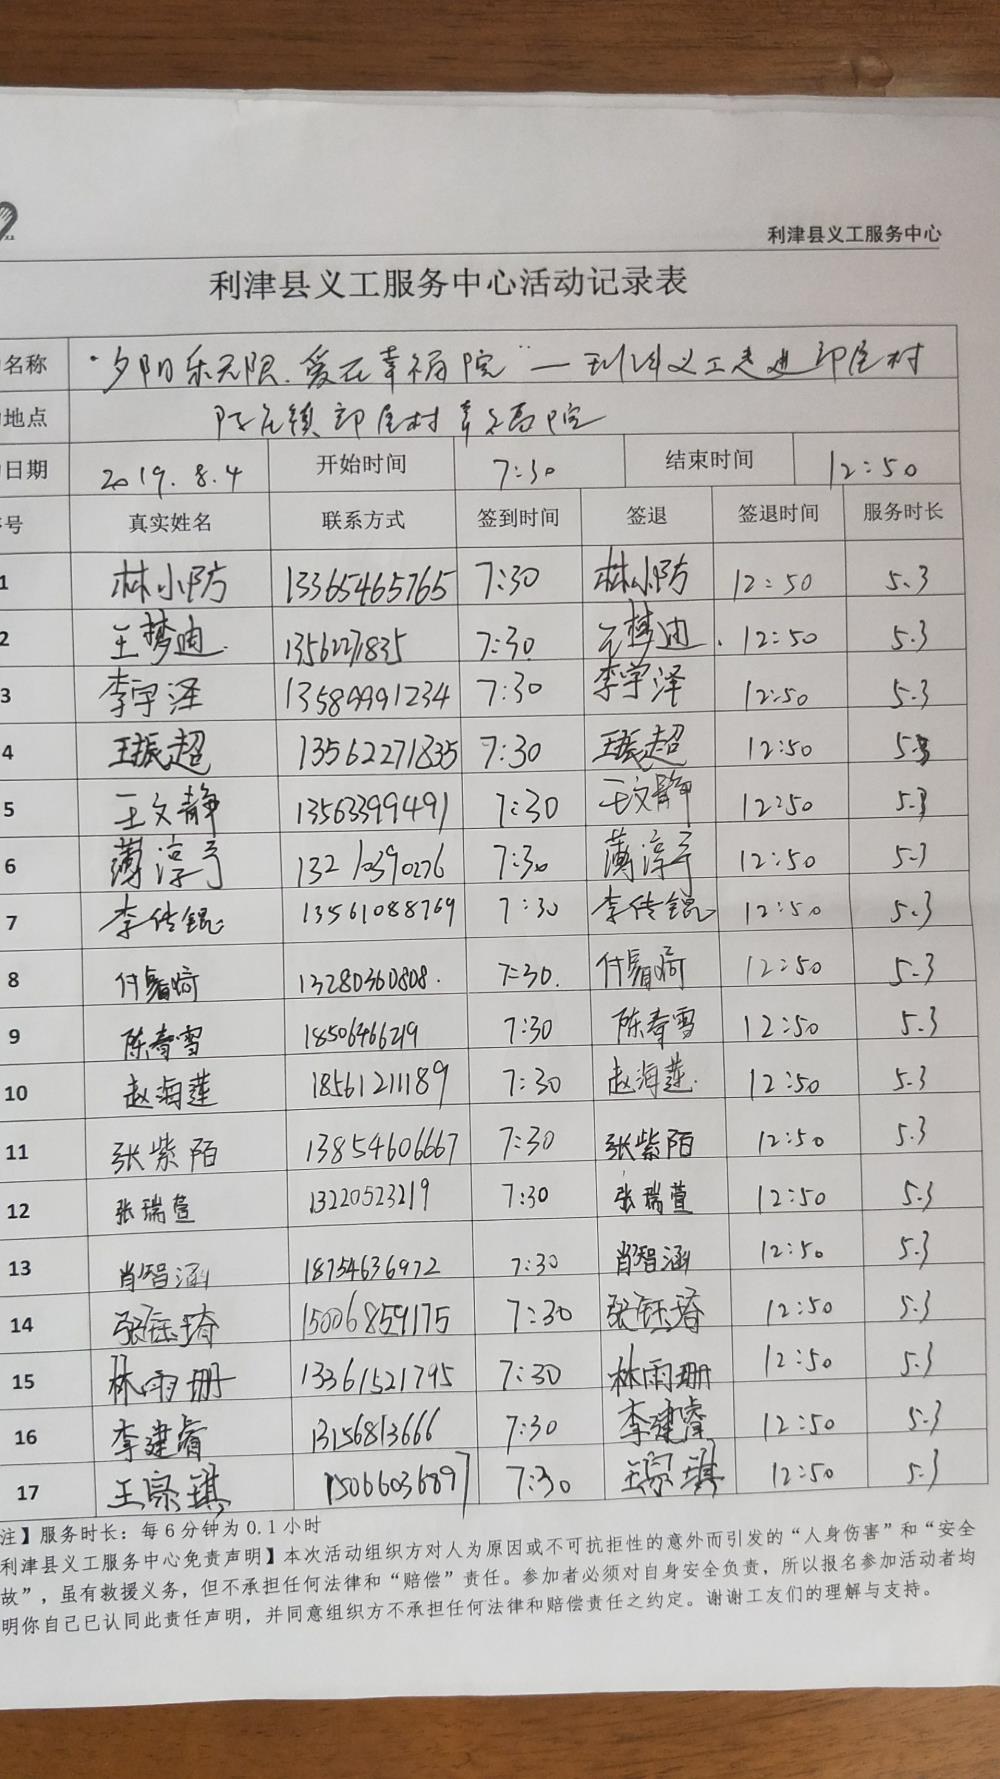 利津县义工服务中心
利津县义工服务中心活动记录表
名称 “夕阳乐无限.爱在幸福院”—利津义工走进邵庄村
地点 陈庄镇邵庄村幸福院
日期 2019.8.4 开始时间 7:30 结束时间 12:50
号 真实姓名 联系方式 签到时间 签退 签退时间 服务时长
1 林小防 13365465765 7:30 林小防 12:50 5.3
2 王梦迪 1356271835 7:30 王梦迪 12:50 5.3
3 李宇泽 13589991234 7:30 李宇泽 12:50 5.3
4 王振超 13562271835 7:30 王振超 12:50 5.3
5 王文静 13563399491 7:30 王文静 12:50 5.3
6 薄淳亏 13210390276 7:30 薄淳亏 12:50 5.3
7 李传锟 13561088769 7:30 李传锟 12:50 5.3
8 付 13280360808. 7:30. 付 12:50 5.3
9 陈春雪 18506466219 7:30 陈春雪 12:50 5.3
10 赵海莲 18561211189 7:30 赵海莲. 12:50 5.3
11 张紫陌 13854606667 7:30 张紫陌 12:50 5.3
12 张瑞萱 13220523219 7:30 张瑞萱 12:50 5.3
13 肖智涵 18754636972 7:30 肖智涵 12:50 5.3
14 张钰琦 15006859175 7:30 张钰琦 12:50 5.3
15 林雨珊 13361521795 7:30 林雨珊 12:50 5.3
16 李建睿 13156813666 7:30 李建睿 12:50 5.3
17 王宗琪 15066036897 7:30 王宗琪 12:50 5.3
注】服务时长：每6分钟为0.1小时
利津县义工服务中心免责声明】本次活动组织方对人为原因或不可抗拒性的意外而引发的“人身伤害”和“安全
故”，虽有救援义务，但不承担任何法律和“赔偿”责任。参加者必须对自身安全负责，所以报名参加活动者均
明你自己已认同此责任声明，并同意组织方不承担任何法律和赔偿责任之约定。谢谢工友们的理解与支持。